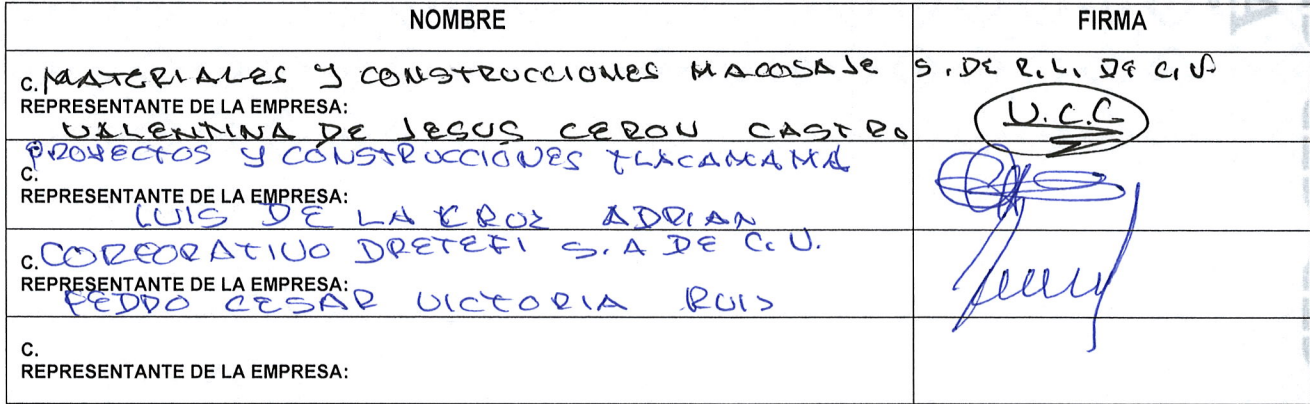 NOMBRE FIRMA
C. MATERIALES Y CONSTRUCCIONES MACOSAJE S. DE R.L. DE C.V.
REPRESENTANTE DE LA EMPRESA:
VALENTINA DE JESUS CERON CASTRO
U.C.C
PROYECTOS Y CONSTRUCCIONES TLACAMAMA
C.
REPRESENTANTE DE LA EMPRESA:
LUIS DE LA CROZ ADRIAN
C. CORPORATIVO DRETEFI S.A DE C.V.
REPRESENTANTE DE LA EMPRESA:
PEDRO CESAR VICTORIA RUIS
C.
REPRESENTANTE DE LA EMPRESA: